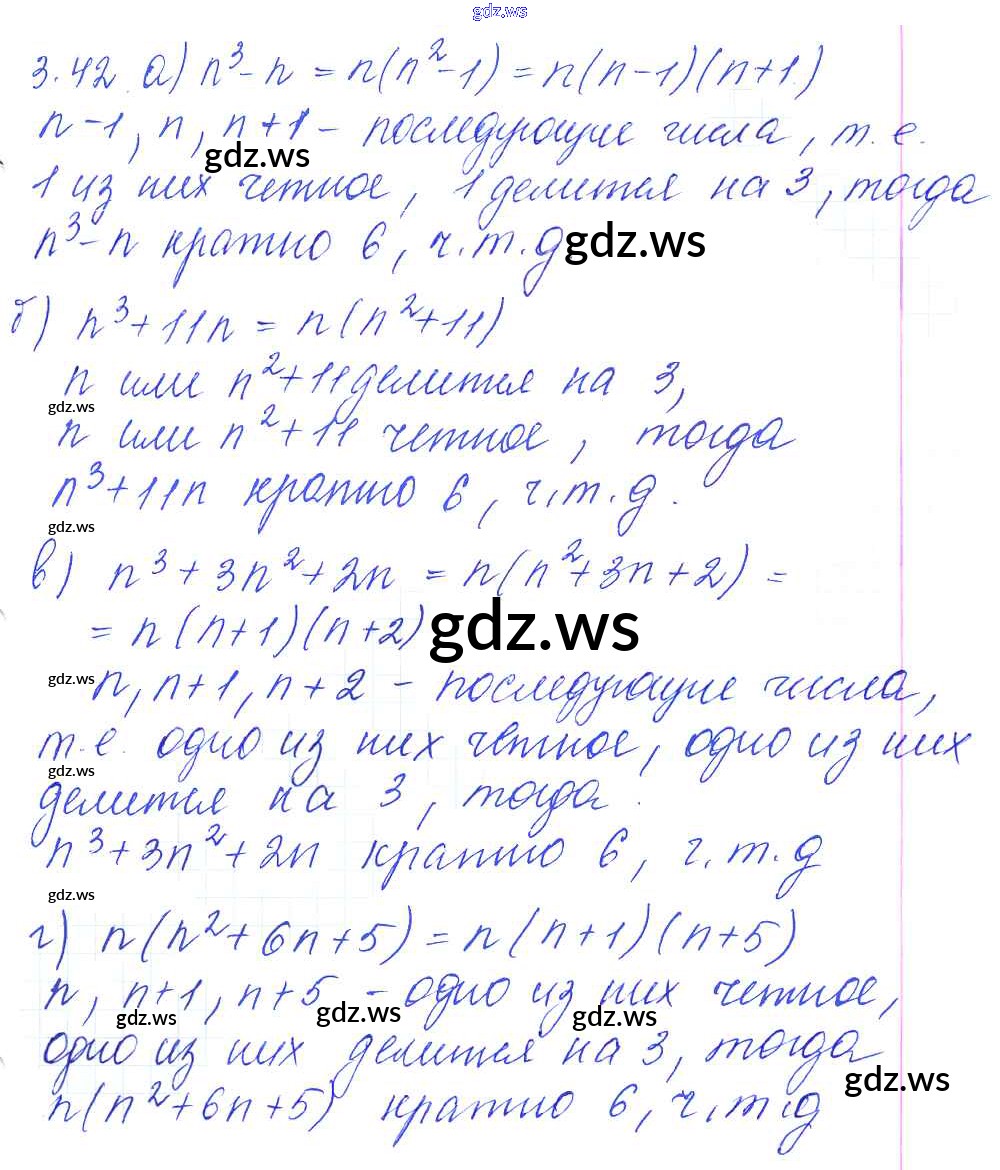 gdz.ws
3.42 а) n³ - n = n(n² - 1) = n(n-1)(n+1)
n-1, n, n+1 - последующие числа, т.е.
gdz.ws
1 из них четное, 1 делится на 3, тогда
n³ - n кратно 6, ч.т.д
gdz.ws
б) n³ + 11n = n(n² + 11)
n или n² + 11 делится на 3,
gdz.ws
n или n² + 11 четное, тогда
n³ + 11n кратно 6, ч.т.д.
gdz.ws
в) n³ + 3n² + 2n = n(n² + 3n + 2) =
= n(n+1)(n+2)
gdz.ws
gdz.ws
n, n+1, n+2 - последующие числа,
т.е. одно из них четное, одно из них
gdz.ws
делится на 3, тогда
n³ + 3n² + 2n кратно 6, ч.т.д
gdz.ws
г) n(n² + 6n + 5) = n(n+1)(n+5)
n, n+1, n+5 - одно из них четное,
gdz.ws
gdz.ws
gdz.ws
одно из них делится на 3, тогда
gdz.ws
n(n² + 6n + 5) кратно 6, ч.т.д